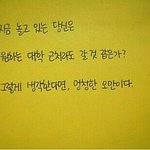 지금 놀고 있는 당신은
원하는 대학 근처라도 갈 것 같은가?
그렇게 생각한다면, 엄청난 오만이다.